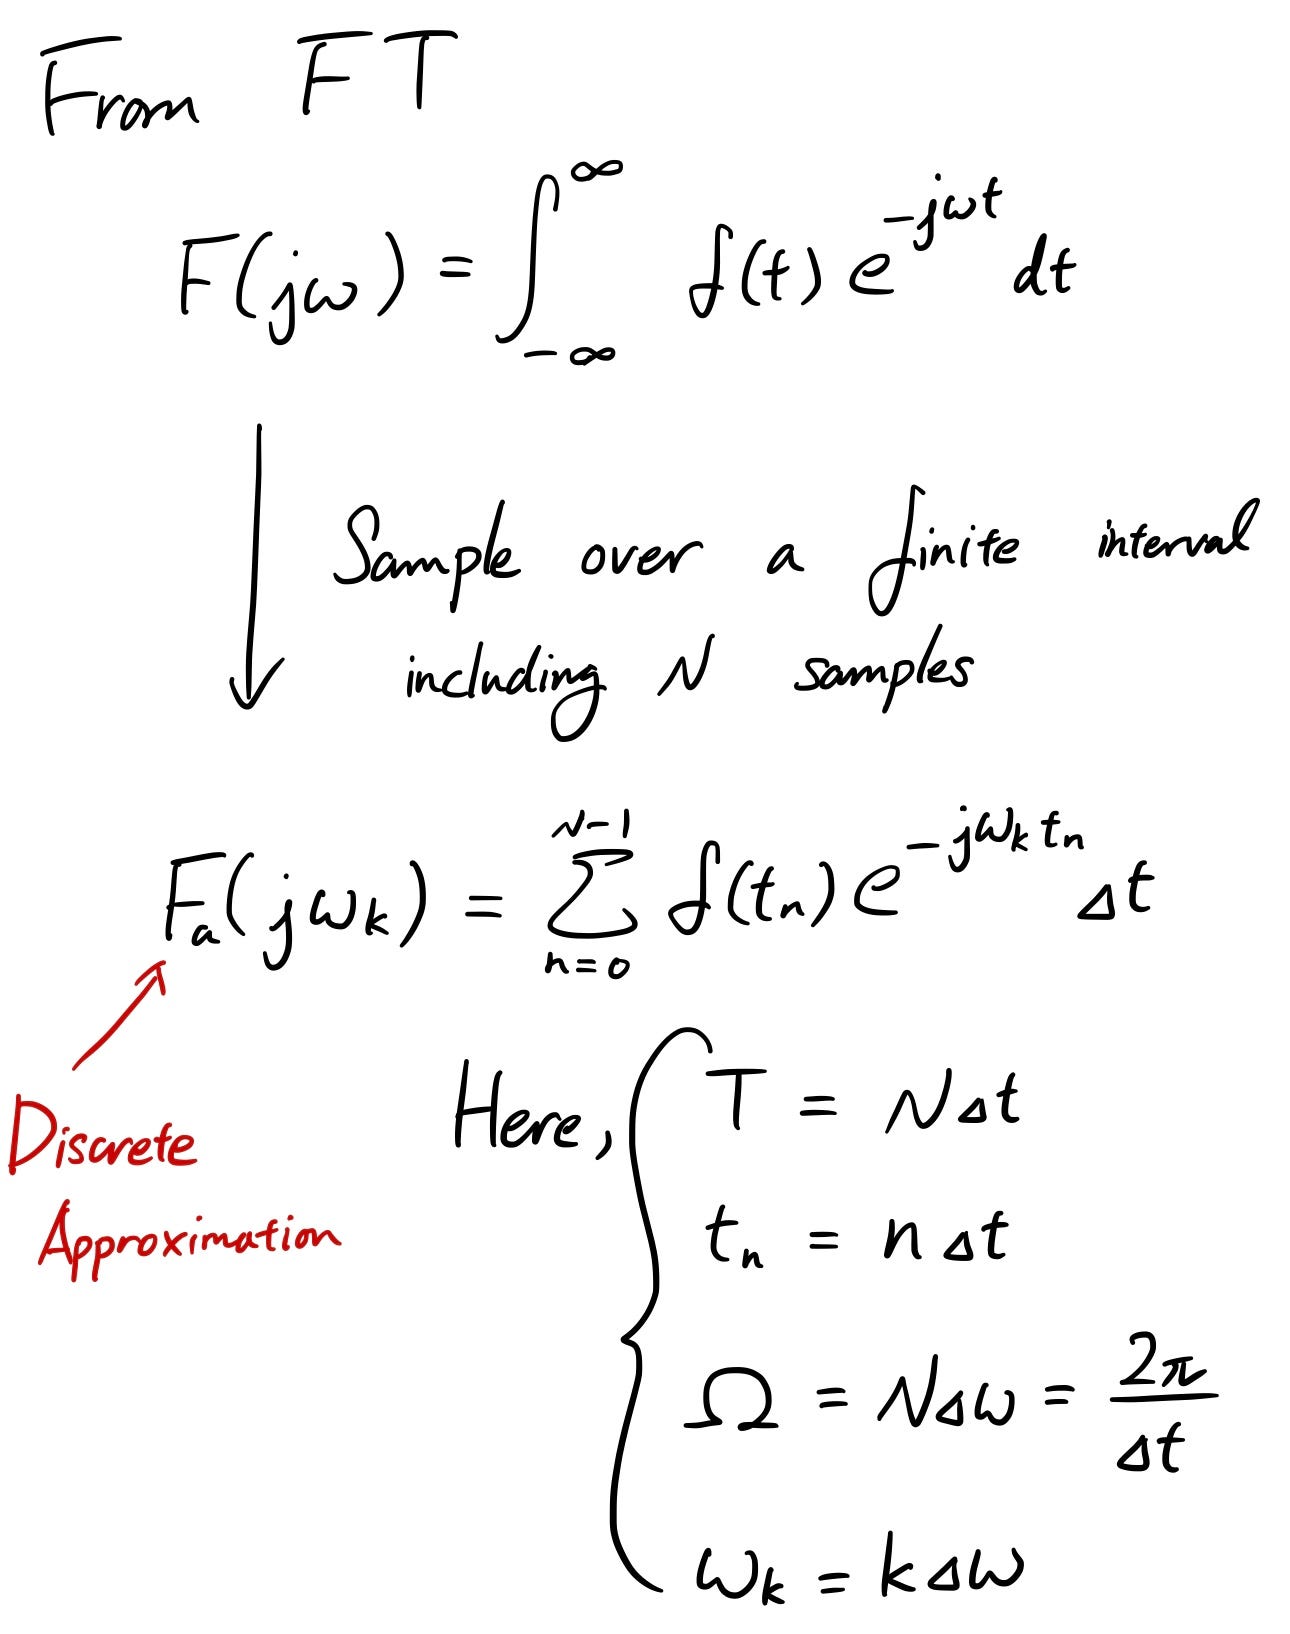 From FT
F(jω) = ∫_{-∞}^{∞} f(t) e^{-jωt} dt
Sample over a finite interval
including N samples
F_a(jω_k) = Σ_{n=0}^{N-1} f(t_n) e^{-jω_k t_n} Δt
Discrete
Approximation
Here, { T = NΔt
t_n = nΔt
Ω = NΔω = \frac{2π}{Δt}
ω_k = kΔω